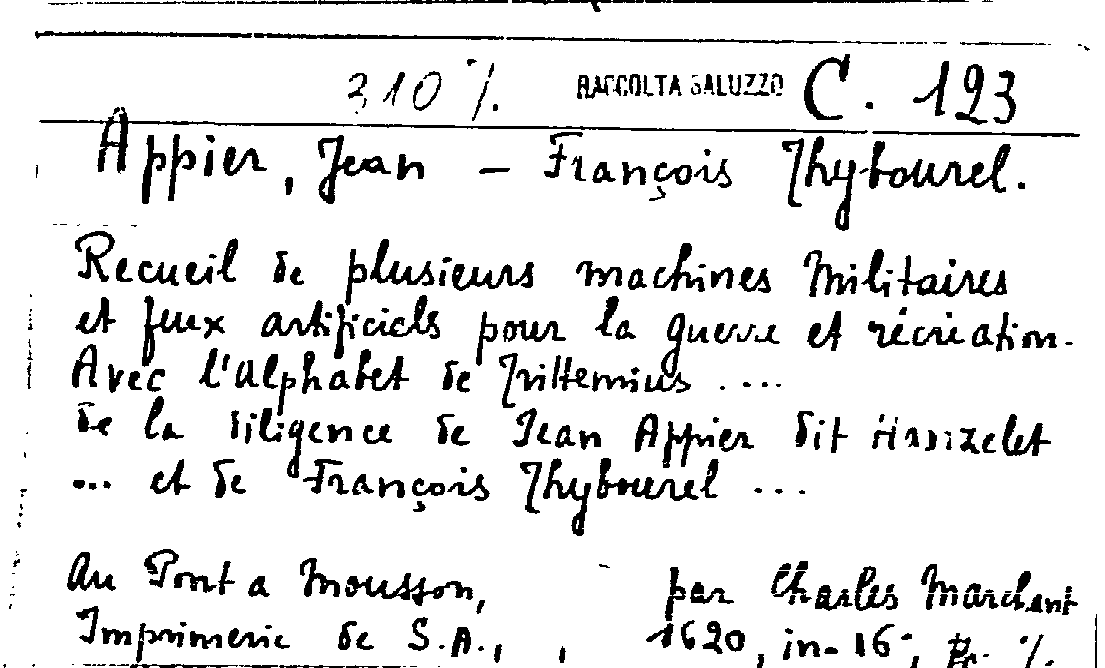 310 /. RACCOLTA SALUZZO C. 123
Appier, Jean - François Thybourel.
Recueil de plusieurs machines Militaires
et feux artificiels pour la guerre et récréation.
Avec l'Alphabet de Trittemius ....
de la diligence de Jean Appier dit Hanzelet
... et de François Thybourel ...
Au Pont a Mousson, par Charles Marchant
Imprimerie de S.A., , 1620, in-16°,